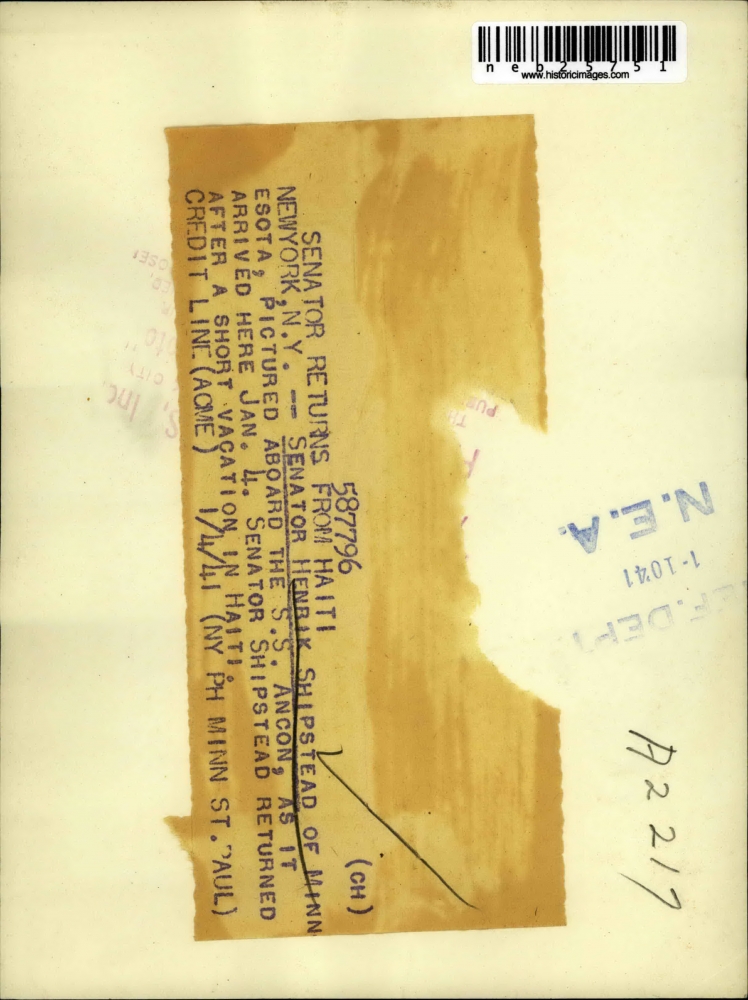 neb25751
www.historicimages.com
587796 (CH)
SENATOR RETURNS FROM HAITI
NEWYORK,N.Y. -- SENATOR HENRIK SHIPSTEAD OF MINN
ESOTA, PICTURED ABOARD THE S.S. ANCON, AS IT
ARRIVED HERE JAN. 4. SENATOR SHIPSTEAD RETURNED
AFTER A SHORT VACATION IN HAITI.
CREDIT LINE (ACME) 1/4/41 (NY PH MINN ST.PAUL)
N.E.A.
1-1041
EF.DEPT.
A2217
, Inc.
CITY
PUB